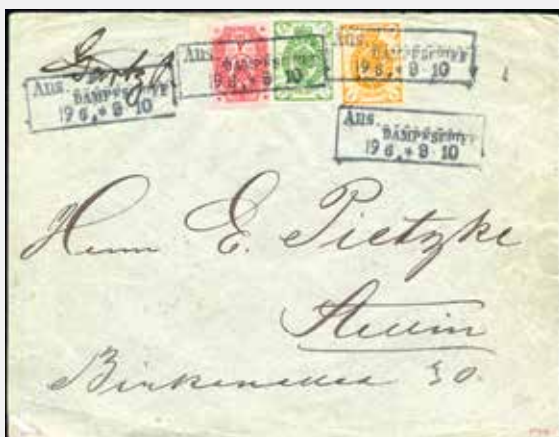 Aus.
DAMPFSCHIFF
19 6. * 8-10
Aus.
DAMPFSCHIFF
19 6. * 8-10
Aus.
DAMPFSCHIFF
19 6. * 8-10
Aus.
DAMPFSCHIFF
19 6. * 8-10
Herrn E. Pietzke
Stettin
Birkenallee 30.